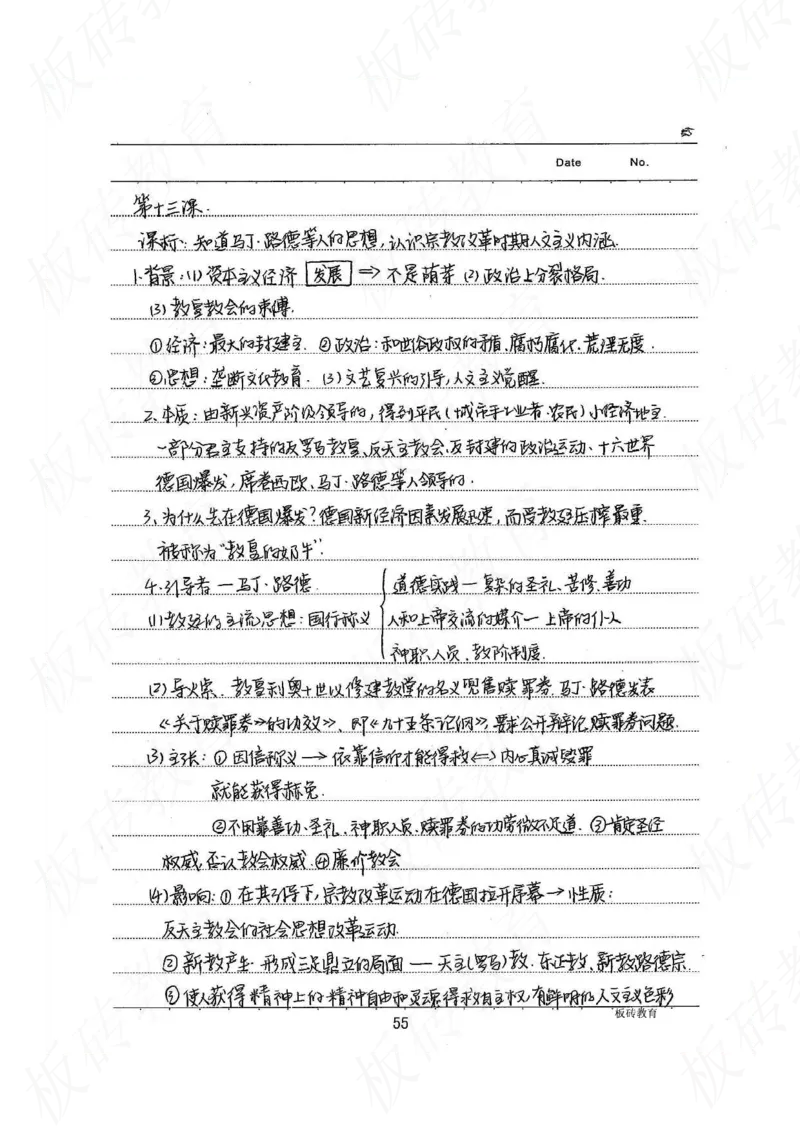 Date No.
第十三课.
课标: 知道马丁·路德等人的思想,认识宗教改革时期人文主义内涵.
1.背景:(1)资本主义经济 发展 ⇒ 不是萌芽 (2)政治上分裂格局.
(3)教皇教会的束缚.
①经济:最大的封建主. ②政治:和世俗政权的矛盾.腐朽腐化.荒淫无度.
③思想:垄断文化教育. (3)文艺复兴的引导,人文主义觉醒.
2.本质: 由新兴资产阶级领导的,得到平民(城市手工业者.农民)小经济地主.
一部分君主支持的反罗马教皇、反天主教会、反封建的政治运动、十六世界
德国爆发,席卷西欧、马丁·路德等人领导的.
3、为什么先在德国爆发?德国新经济因素发展迅速,而受教廷压榨最重.
被称为"教皇的奶牛".
4.引导者 — 马丁·路德. 道德实践 — 复杂的圣礼、苦修、善功
(1)教廷的主流思想:国行称义 人和上帝交流的媒介 — 上帝的仆人
神职人员、教阶制度.
(2)导火索. 教皇利奥十世以修建教堂的名义兜售赎罪券.马丁·路德发表
《关于赎罪券》的功效》、即《九十五条论纲》,要求公开辩论赎罪券问题.
(3)主张: ①因信称义 → 依靠信仰才能得救 ⇔ 内心真诚毁罪
就能获得赦免.
②不用靠善功、圣礼、神职人员、赎罪券的功劳微不足道. ③肯定圣经
权威,否认教会权威.④廉价教会
(4)影响:①在其引导下,宗教改革运动在德国拉开序幕 → 性质:
反天主教会的社会思想改革运动.
②新教产生.形成三足鼎立的局面 — 天主(罗马)教.东正教、新教路德宗.
③使人获得精神上的精神自由和灵魂得救自主权,有鲜明的人文主义色彩
板砖教育
55